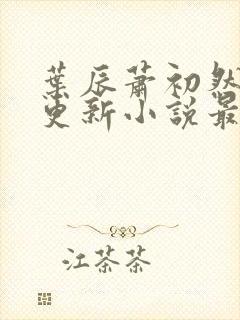 葉辰蕭初然
更新小說最
江茶茶